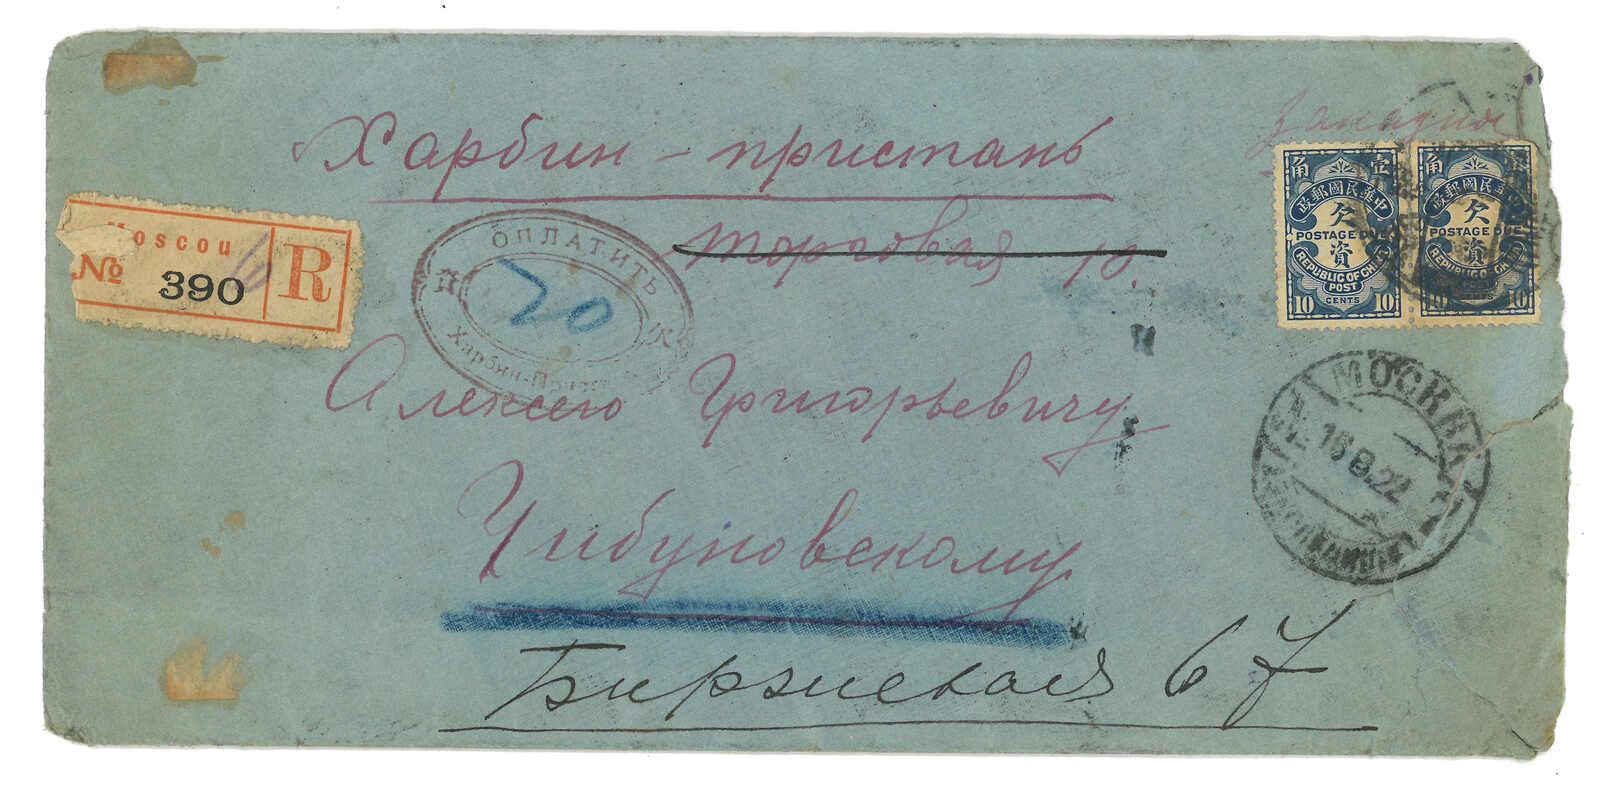 Харбин - пристань
Заказное
Moscou
№ 390
R
ОПЛАТИТЬ
20
Харбин-При
Торговая 10.
角 壹
政郵國民華中
欠
POSTAGE DUE
資
REPUBLIC OF CHINA
POST
10 CENTS 10
角 壹
政郵國民華中
欠
POSTAGE DUE
資
REPUBLIC OF CHINA
POST
10 CENTS 10
Алексею Григорьевичу
МОСКВА
16.8.22
Чибуновскому
Биржевая 67